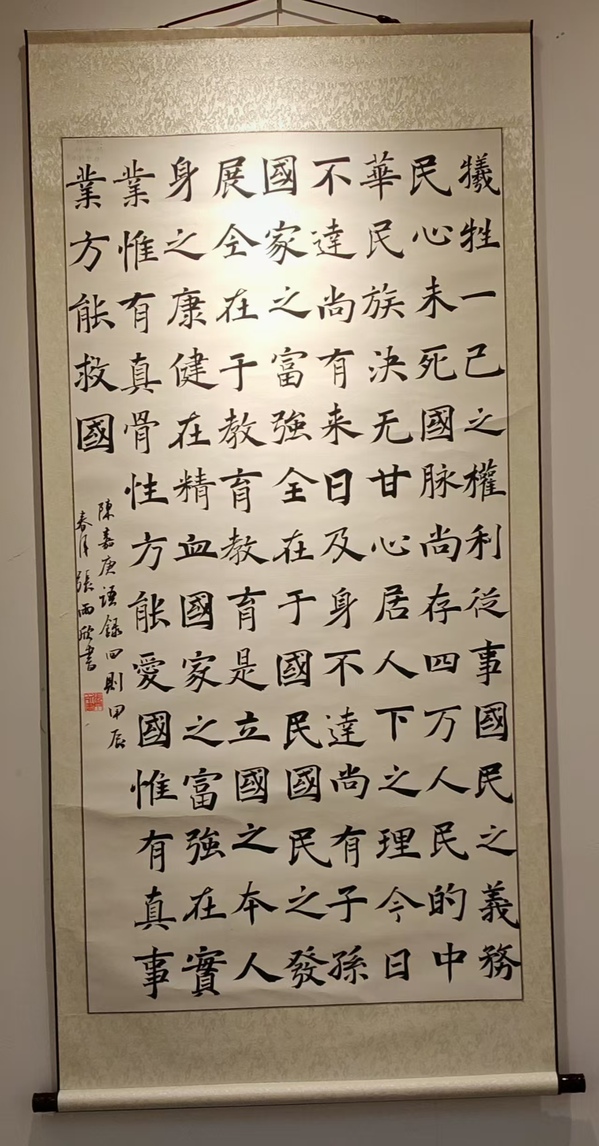 犧牲一己之權利從事國民之義務
民心未死國脉尚存四万人民的中
華民族決无甘心居人下之理今日
不達尚有来日及身不達尚有子孫
國家之富強全在于國民國民之發
展全在于教育教育是立國之本人
身之康健在精血國家之富強在實
業惟有真骨性方能愛國惟有真事
業方能救國
陳嘉庚語錄四則甲辰
春月張雨欣書